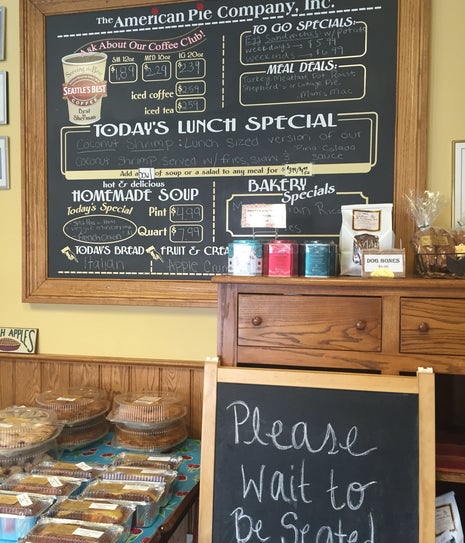 The American Pie Company, Inc.
Ask About Our Coffee Club!
SM 12oz MED 16oz LG 20oz
$1.89 $2.29 $2.39
Serving the Best
SEATTLE'S BEST
COFFEE
iced coffee $2.59
iced tea $2.59
TO GO SPECIALS:
Egg Sandwiches w/ Potato
weekdays → $5.99
weekends → $6.99
MEAL DEALS:
Turkey, Meatloaf, Pot Roast
Shepherd's or Cottage Pie
Mum's Mac
TODAY'S LUNCH SPECIAL
Coconut Shrimp: Lunch sized version of our
Coconut Shrimp served w/ fries, slaw & Pina Colada sauce
Add a cup of soup or a salad to any meal for
hot & delicious
HOMEMADE SOUP
Today's Special
French Onion
Pint $4.99
Quart $7.99
BAKERY
Specials
TODAY'S BREAD
Italian
FRUIT & CREA
Apple
DOG BONES
H APPLES
Please
Wait to
Be Seated